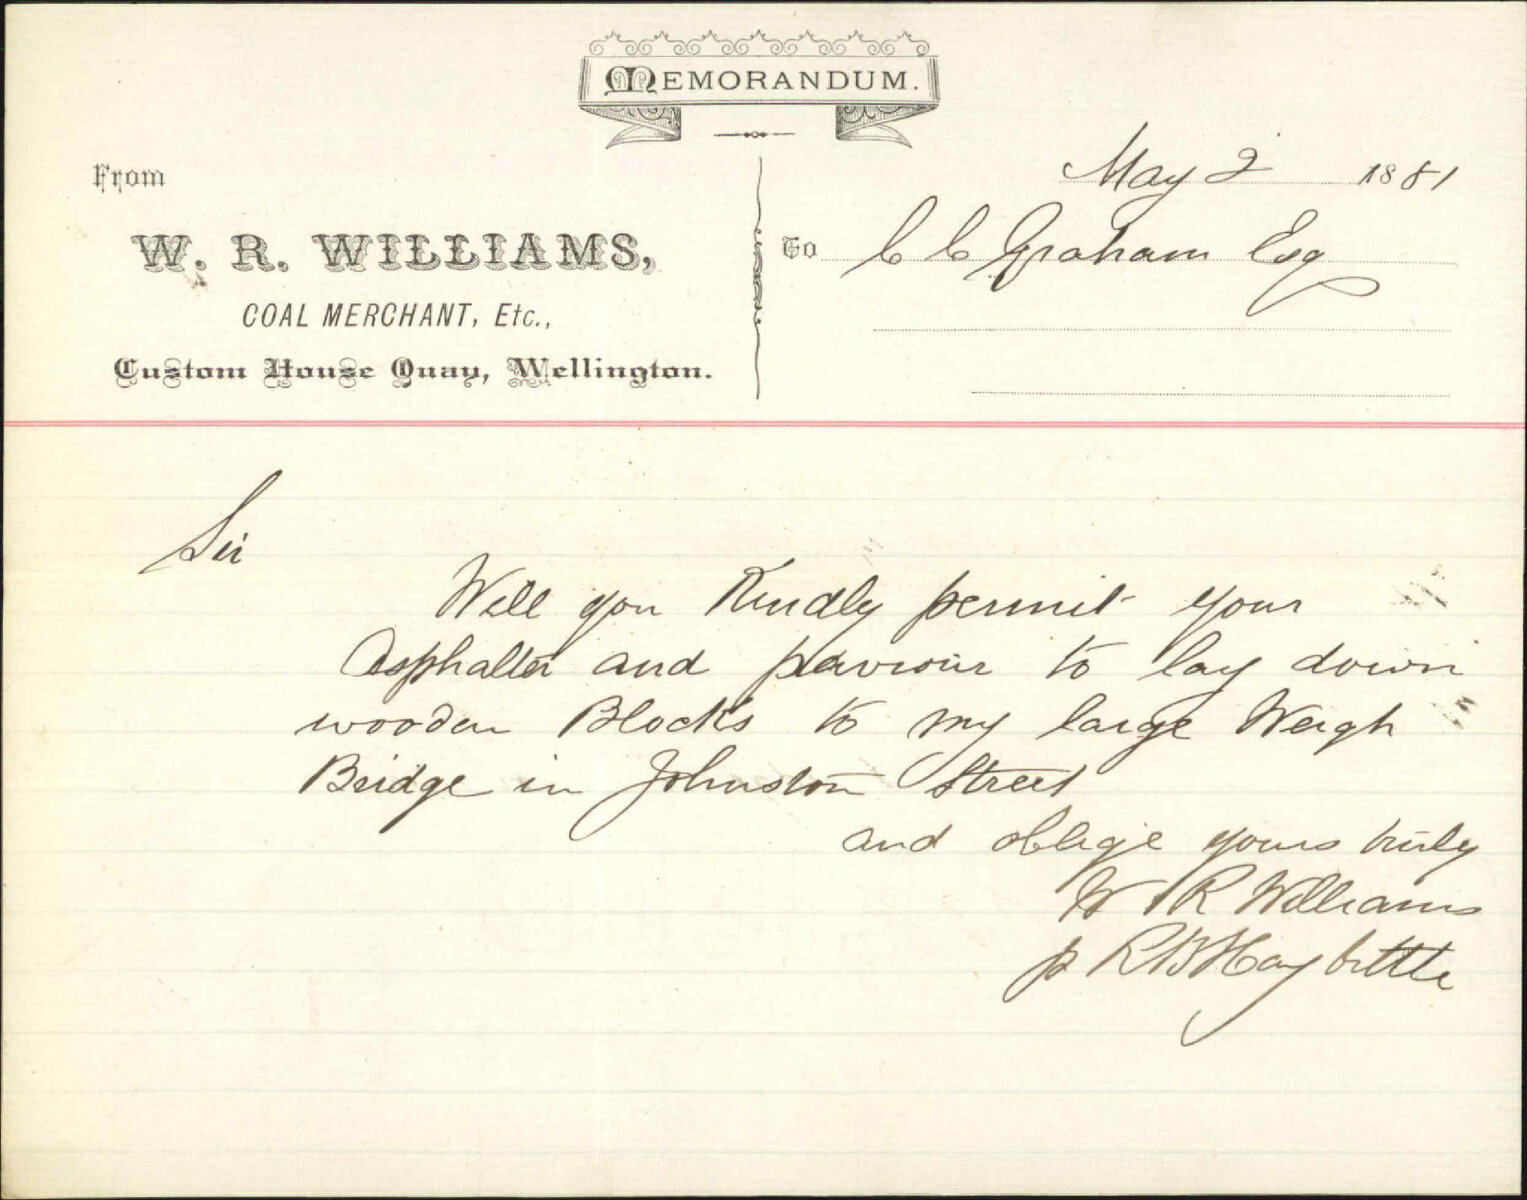 MEMORANDUM.
From
May 2 1881
W. R. WILLIAMS,
To C C Graham Esq
COAL MERCHANT, Etc.,
Custom House Quay, Wellington.
Sir
Will you Kindly permit your
Asphalter and paviour to lay down
wooden Blocks to my large Weigh
Bridge in Johnston Street
and oblige yours truly
W R Williams
p R B Haybittle